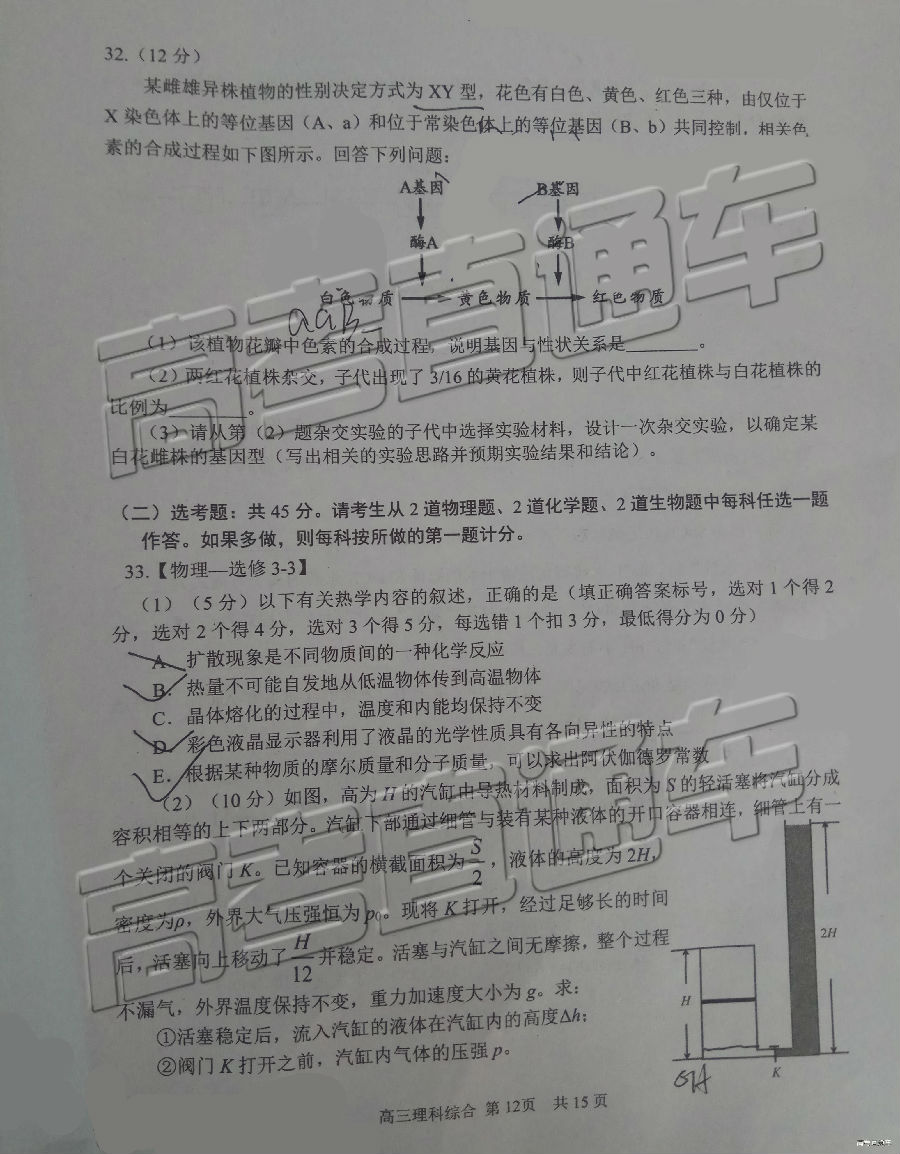 32.（12 分）
某雌雄异株植物的性别决定方式为 XY 型，花色有白色、黄色、红色三种，由仅位于
X 染色体上的等位基因（A、a）和位于常染色体上的等位基因（B、b）共同控制，相关色
素的合成过程如下图所示。回答下列问题：
A基因 B基因
酶A 酶B
白色物质 黄色物质 红色物质
aaB_
（1）该植物花瓣中色素的合成过程，说明基因与性状关系是________。
（2）两红花植株杂交，子代出现了 3/16 的黄花植株，则子代中红花植株与白花植株的
比例为________。
（3）请从第（2）题杂交实验的子代中选择实验材料，设计一次杂交实验，以确定某
白花雌株的基因型（写出相关的实验思路并预期实验结果和结论）。
（二）选考题：共 45 分。请考生从 2 道物理题、2 道化学题、2 道生物题中每科任选一题
作答。如果多做，则每科按所做的第一题计分。
33.【物理—选修 3-3】
（1）（5 分）以下有关热学内容的叙述，正确的是（填正确答案标号，选对 1 个得 2
分，选对 2 个得 4 分，选对 3 个得 5 分，每选错 1 个扣 3 分，最低得分为 0 分）
A．扩散现象是不同物质间的一种化学反应
B．热量不可能自发地从低温物体传到高温物体
C．晶体熔化的过程中，温度和内能均保持不变
D．彩色液晶显示器利用了液晶的光学性质具有各向异性的特点
E．根据某种物质的摩尔质量和分子质量，可以求出阿伏伽德罗常数
（2）（10 分）如图，高为 H 的汽缸由导热材料制成，面积为 S 的轻活塞将汽缸分成
容积相等的上下两部分。汽缸下部通过细管与装有某种液体的开口容器相连，细管上有一
个关闭的阀门 K。已知容器的横截面积为 S/2，液体的高度为 2H，
密度为ρ，外界大气压强恒为 p₀。现将 K 打开，经过足够长的时间
后，活塞向上移动了 H/12 并稳定。活塞与汽缸之间无摩擦，整个过程
不漏气，外界温度保持不变，重力加速度大小为 g。求：
①活塞稳定后，流入汽缸的液体在汽缸内的高度Δh；
②阀门 K 打开之前，汽缸内气体的压强 p。
H
2H
K
高三理科综合 第 12页 共 15 页
高考直通车
高考直通车